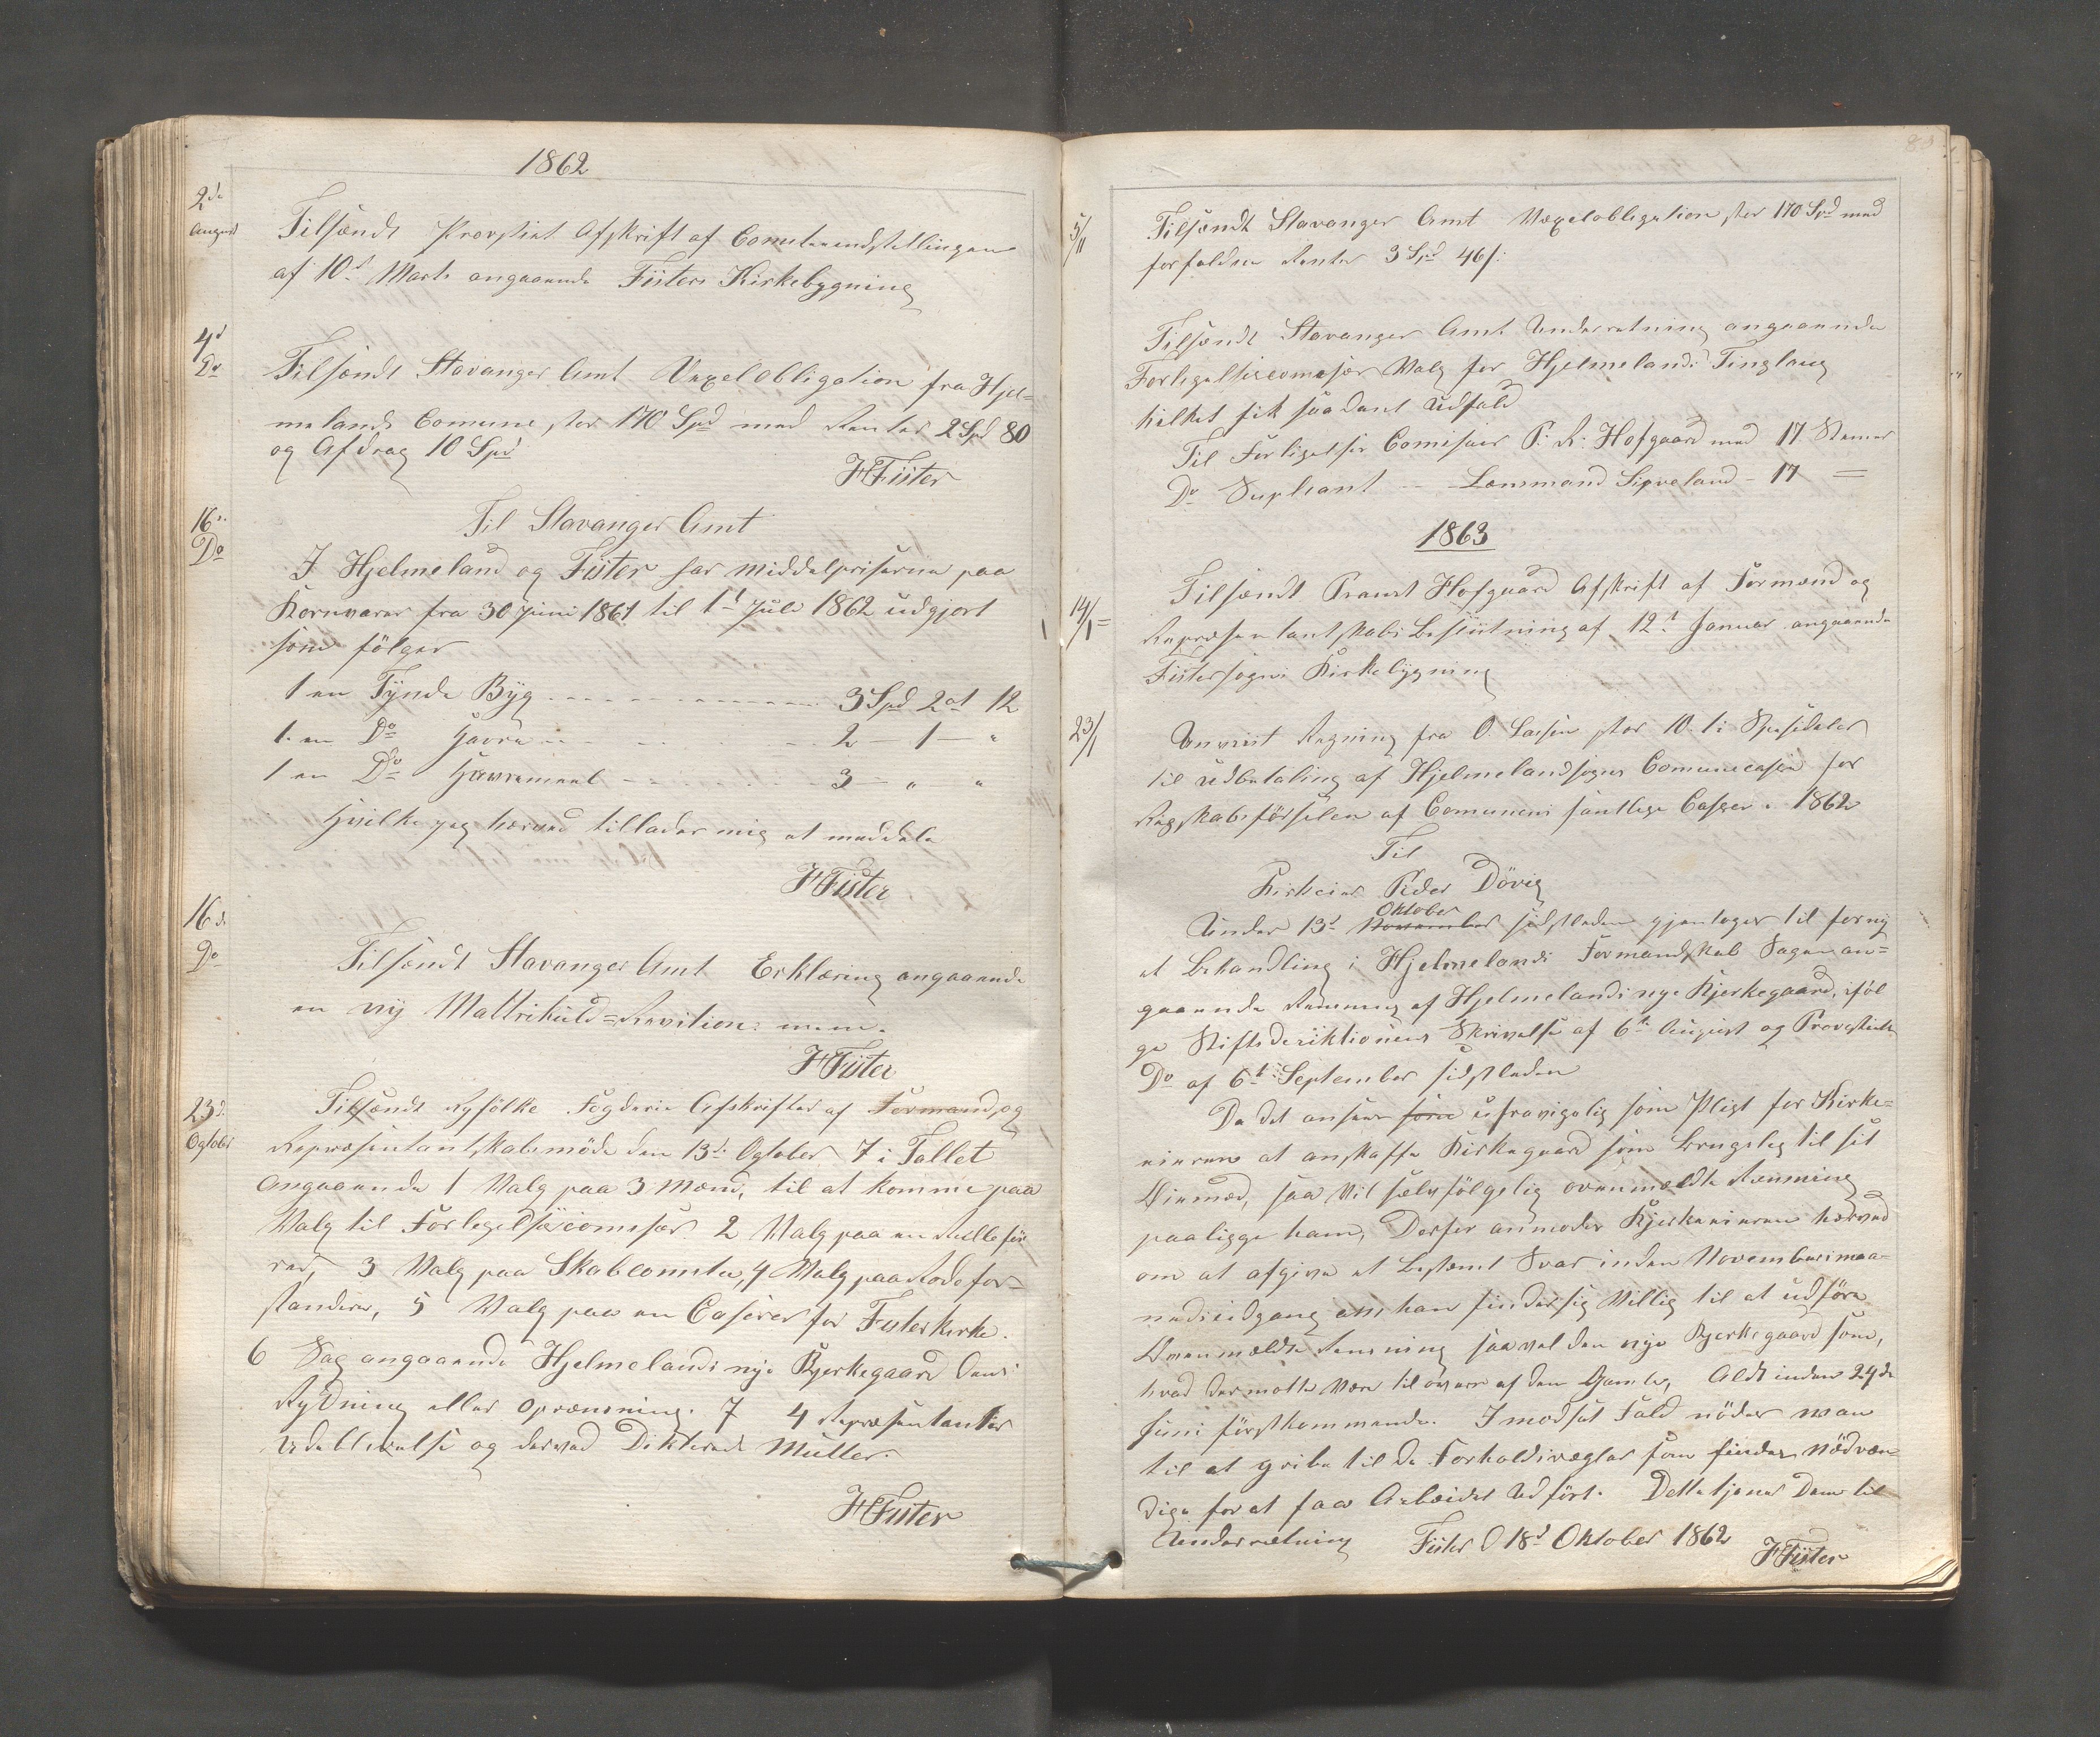 1862
2de
August
Tilsændt Provstiet Afskrift af Comiteeindstillingen
af 10d Marts angaaende Fisters Kirkebygning
4d
Do
Tilsændt Stavanger Amt Vexelobligation fra Hjel=
melands Comune, stor 170 Spd med Renter 2 Spd 80
og Afdrag 10 Spd
HFister
16d
Do
Til Stavanger Amt
I Hjelmeland og Fister har Middelpriserne paa
Kornvarer fra 30 Juni 1861 til 1d Juli 1862 udgjort
som følger
1 en Tynde Byg 3 Spd 2 ot 12
1 en Do Havre 2 — 1 — "
1 en Do Havremeel 3 — " "
Hvilke jeg herved tillader mig at meddele
HFister
16d
Do
Tilsændt Stavanger Amt Erklæring angaaende
en ny Mattrikuld=Revition
HFister
23d
Ogtober
Tilsændt Ryfölke Fogderie Afskrifter af Formand og
Repræsentantskabsmöde den 13d Ogtober 7 i Tallet
Angaaende 1 Valg paa 3 Mænd, til at komme paa
Valg til Forlegelsecomisær 2 Valg paa en Rulleför
rer, 3 Valg paa Skolecomite, 4 Valg paa Rodefor=
standere, 5 Valg paa en Caserer for Fisterkirke.
6 Sag angaaende Hjelmelands nye Kjerkegaard dens
Rydning eller oprænsning. 7 4 Repræsentanter
Udeblivelse og derved Dikterede Multer.
HFister
5/11
Tilsændt Stavanger Amt Vexelobligation, stor 170 Spd med
forfaldne Renter 3 Spd 46 s:
Tilsændt Stavanger Amt Underretning angaaende
Forligelsescomesær Valg for Hjelmelands Tinglaug
hvilket fik saadant Udfald
Til Forligelses Comisair P: R: Hofgaard med 17 Stemer
Do Supleant — Lænsmand Sigveland — 17 =
1863
14/1=
Tilsændt Provst Hofgaard Afskrift af Formænd og
Repræsentantskabs Beslutning af 12d Januar angaaende
Fistersogns Kirkebygning
23/1
Anvist Regning fra O. Larsen stor 10 ti Spesidaler
til Udbetaling af Hjelmelandsogns Comunecasse for
Regskabsförselen af Comunens samtlege Casser. 1862
Til
Kirkeier Peder Dövig
Oktober
Under 13d November sidstleden gjentoges til forny
et Behandling i Hjelmelands Formandskab Sagen an=
gaaende Rænsning af Hjelmelands nye Kjerkegaard, iföl
ge Stiftsderiktionens Skrivelse af 6te August og Provstiets
Do af 6te September sidstleden
Da det ansees som ufravigelig som Pligt for Kirke=
eieren at anskaffe Kirkegaard som brugelig til sit
Öiemed, saa vil selvfölgelig ovenmældte Rænsning
paaligge ham, Derfor anmodes Kjerkeeieren herved
om at afgive et bestemt Svar inden Novembersmaa=
nedsudgang om han finder sig Villig til at udföre
Ovenmældte Rænsning saavel den nye Kjerkegaard som,
hvad der motte være tilovers af den Gamle, Aldt inden 24de
Juni förstkommende. I modsat Fald nödes man
til at gribe til de Forholdsregler som findes Nödven=
dige for at faae Arbeidet Udfört. Dette tjener Dem til
Underretning Fister d 18d Oktober 1862 HFister